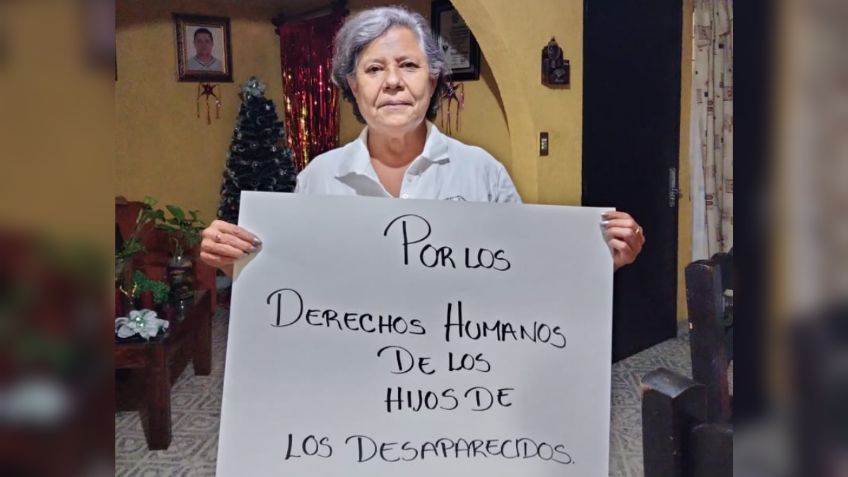 POR LOS
DERECHOS HUMANOS
DE LOS
HIJOS DE
LOS DESAPARECIDOS.